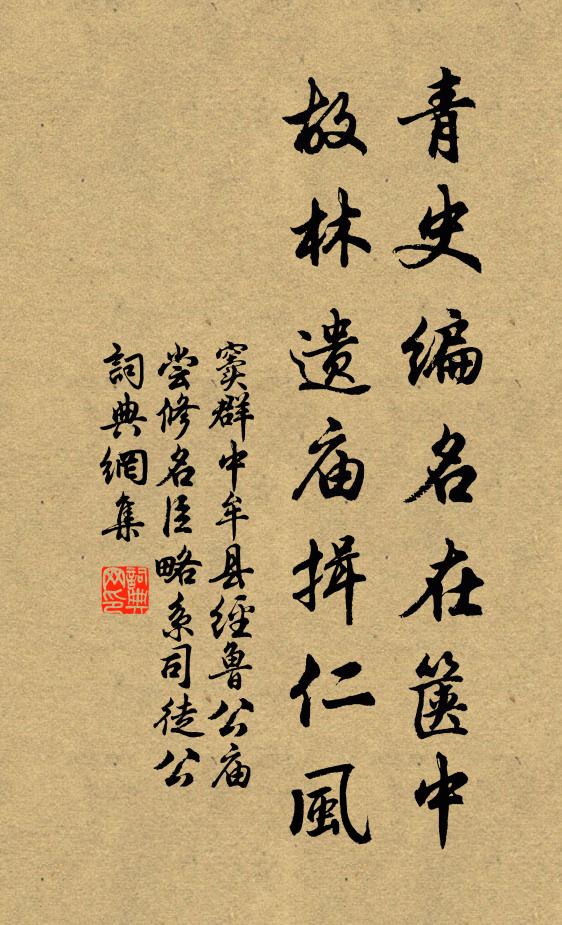 青史编名在箧中
故林遗庙揖仁風
窦群中牟县經鲁公庙
尝修名臣略系司徒公
詞典網集
詞典网印